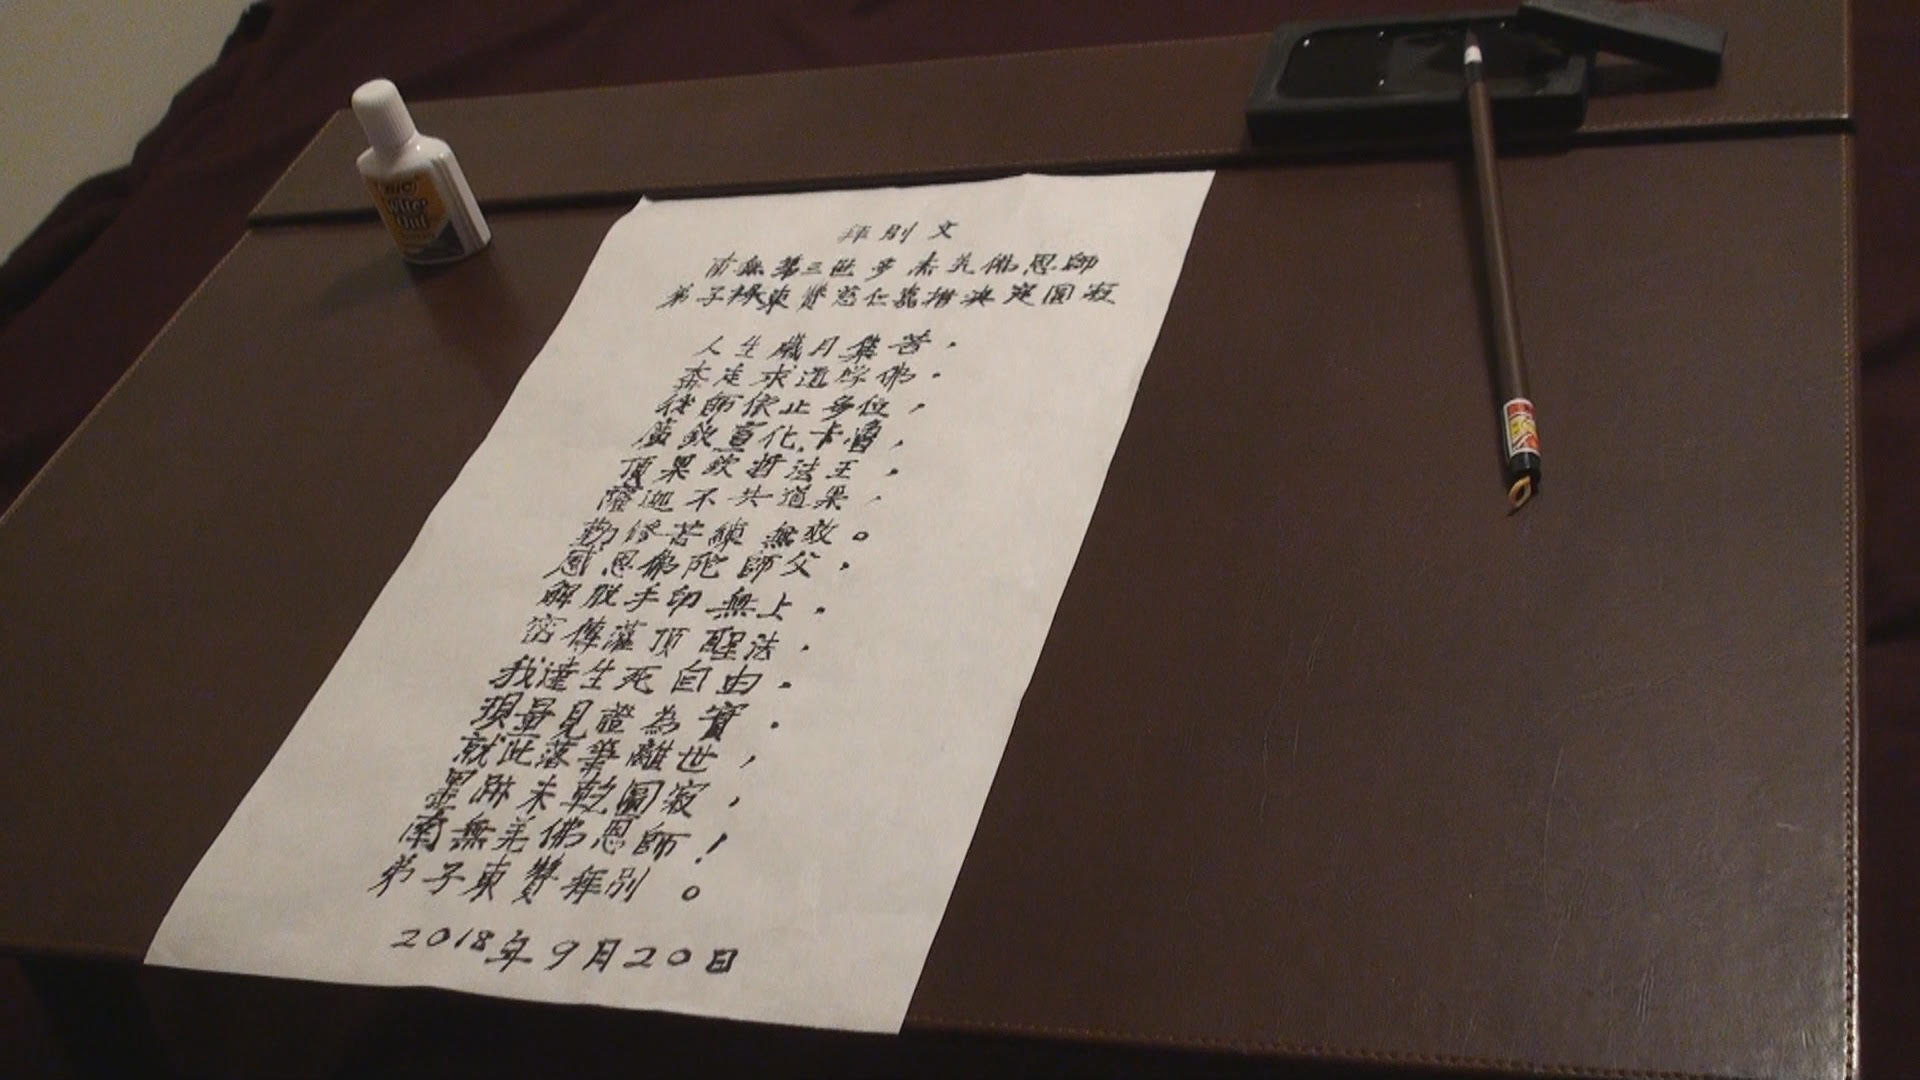 BIC
Wite Out
拜別文
南無第三世多杰羌佛恩師
弟子東贊慈仁嘉措決定圓寂
人生歲月集苦，
奔走求道學佛。
從師依止多位，
廣欽宣化卡魯，
頂果欽哲法王，
薩迦不共道果，
勤修苦練無效。
感恩佛陀師父，
解脫手印無上。
密傳灌頂聖法，
我達生死自由。
現量見證為實。
就此落筆離世，
墨跡未乾圓寂，
南無羌佛恩師！
弟子東贊拜別。
2018年9月20日